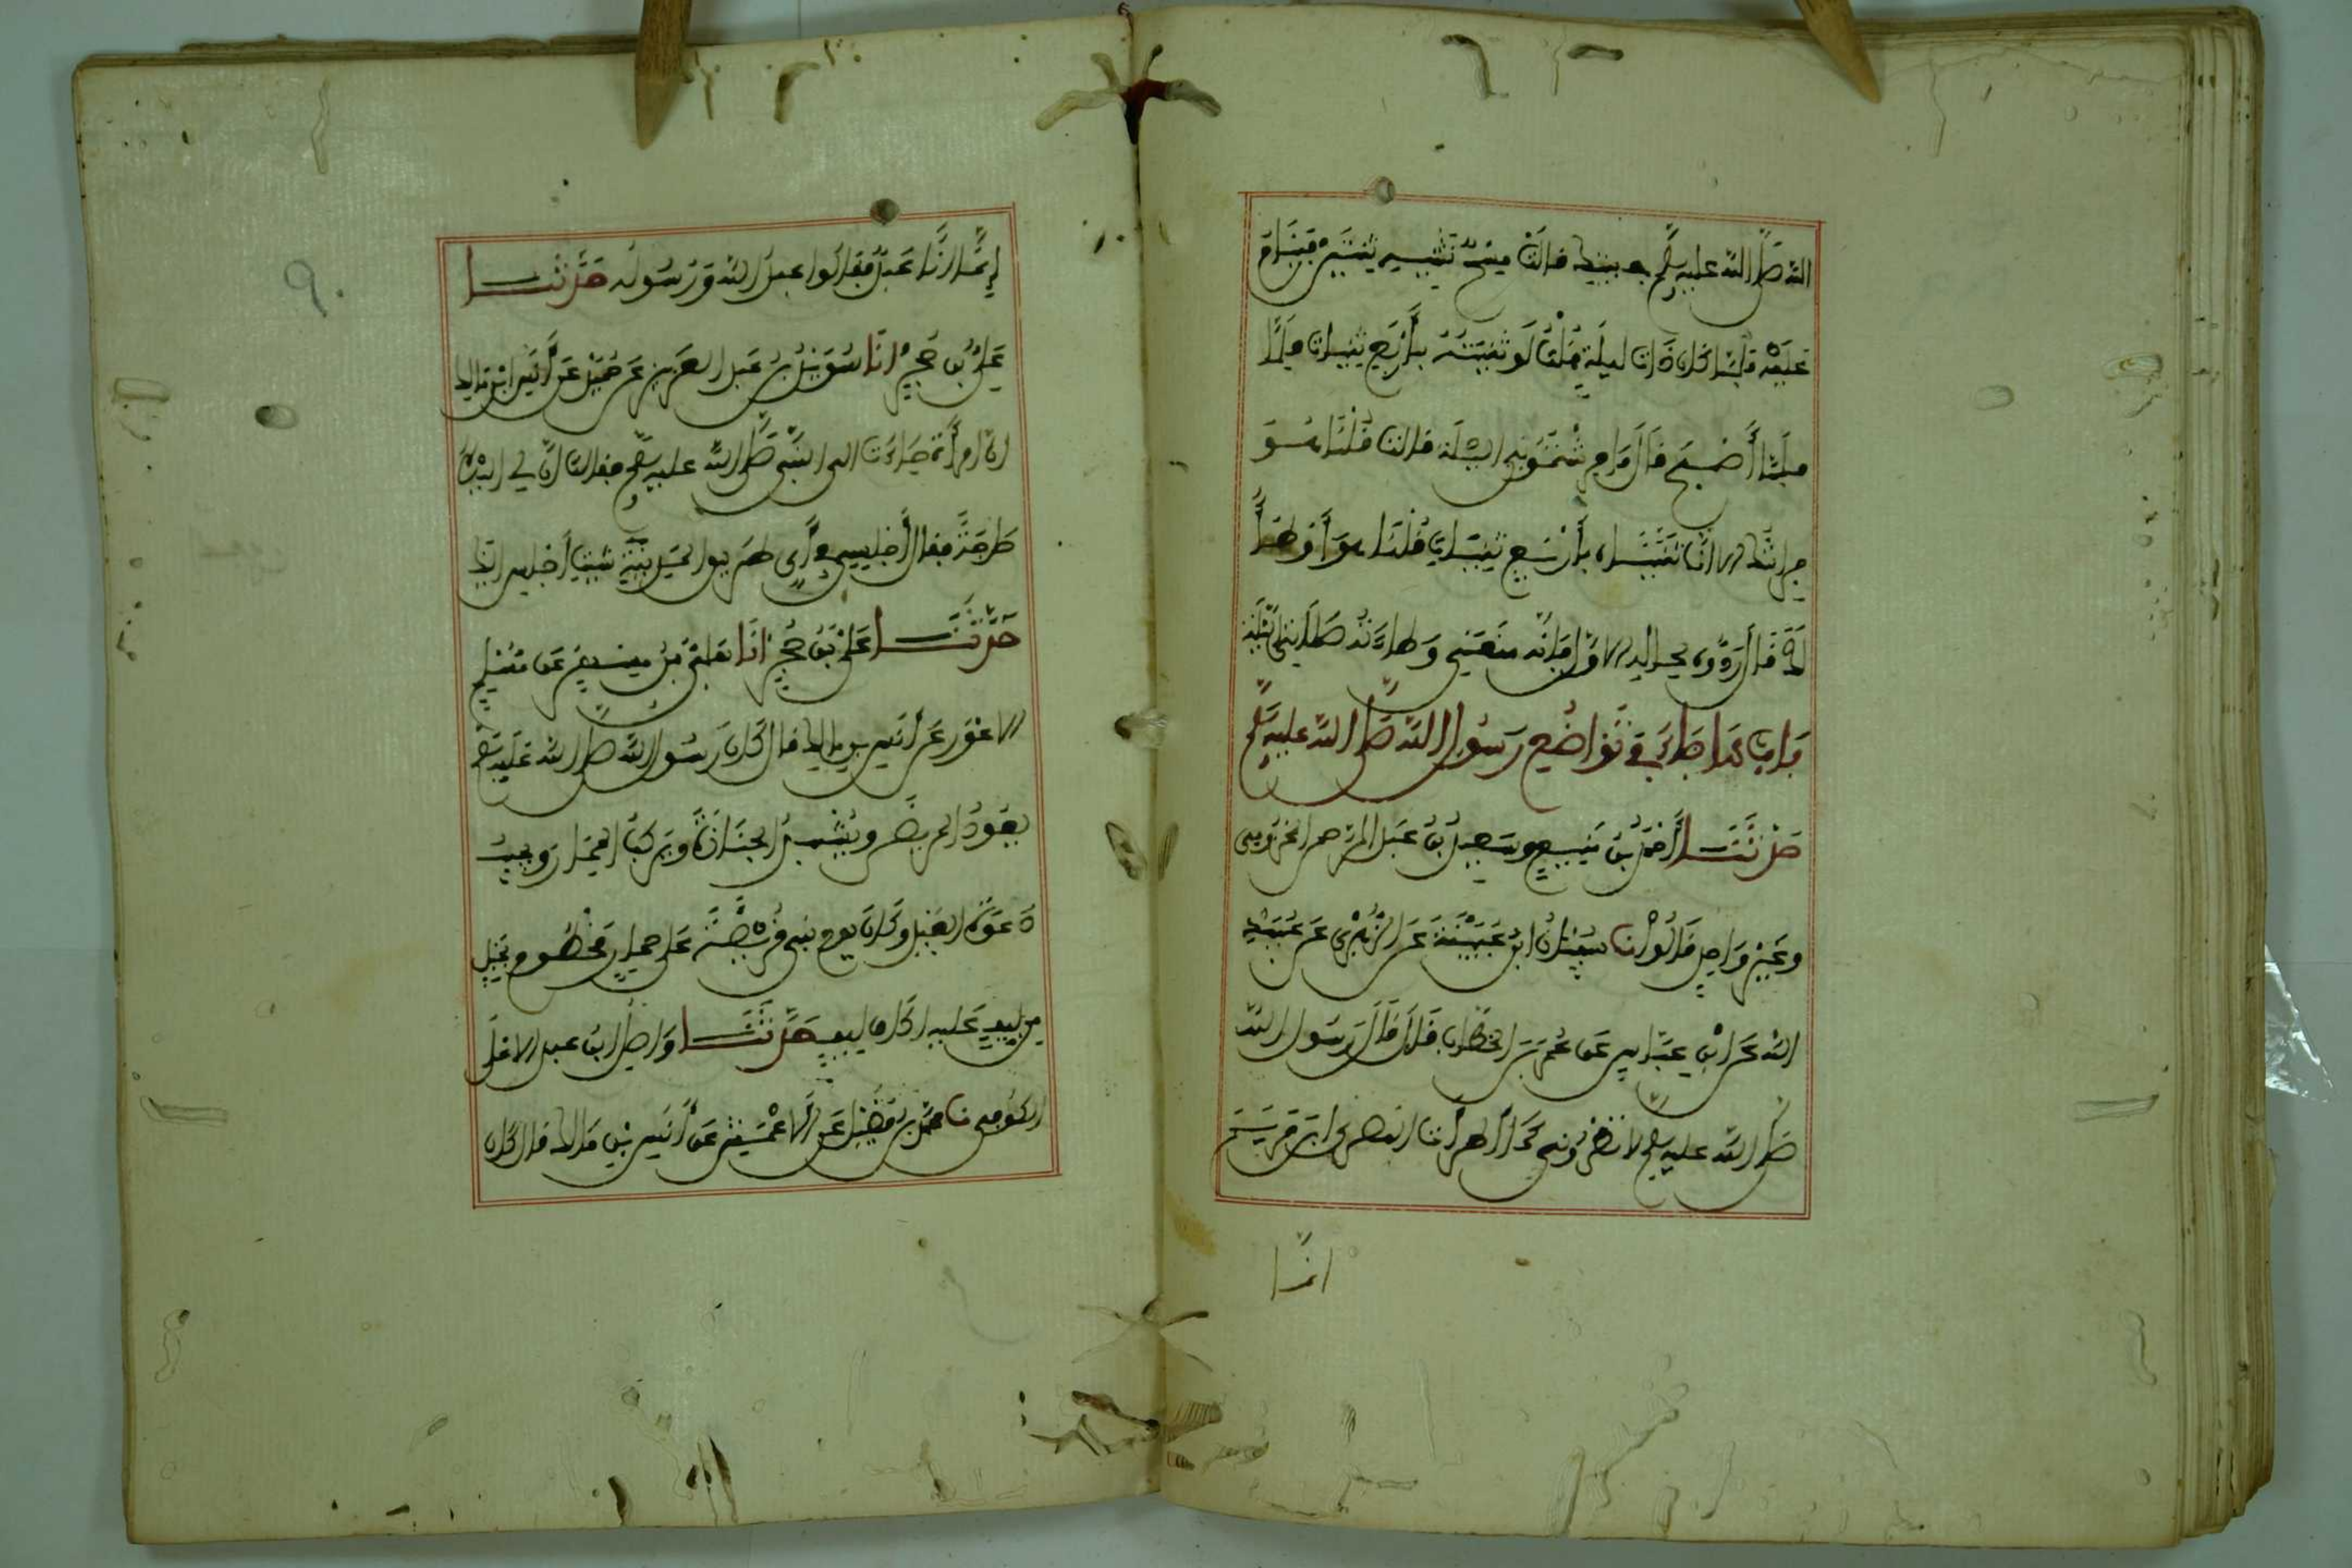 الله صلى الله عليه وسلم في بيتك قالت مسح نثنيه ثنيتين فينام
عليه فلما كان ذات ليلة قلت لو ثنيته بأربع ثنيات
فلما أصبح قال ما فرشتموني الليلة قالت قلنا هو
فراشك إلا أنا ثنيناه بأربع ثنيات قلنا هو أوطأ
لك قال ردوه لحاله الأول فإنه منعني وطاءته صلاتي الليلة
باب ما جاء في تواضع رسول الله صلى الله عليه وسلم
حدثنا أحمد بن منيع وسعيد بن عبد الرحمن المخزومي
وغير واحد قالوا نا سفيان ابن عيينة عن الزهري عن عبيد
الله عن ابن عباس عن عمر بن الخطاب قال قال رسول الله
صلى الله عليه وسلم لا تطروني كما أطرت النصارى ابن مريم
انما
إنما أنا عبد فقولوا عبد الله ورسوله حدثنا
علي بن حجر انا سويد بن عبد العزيز عن حميد عن أنس ابن مالك
ان امرأة جاءت الى النبي صلى الله عليه وسلم فقالت ان لي اليك
حاجة فقال أجلسي في أي طريق المدينة شئت أجلس اليك
حدثنا علي بن حجر انا علي بن مسهر عن مسلم
الاعور عن أنس بن مالك قال كان رسول الله صلى الله عليه وسلم
يعود المريض ويشهد الجنازة ويركب الحمار ويجيب
دعوة العبد وكان يوم بني قريظة على حمار مخطوم بحبل
من ليف عليه اكاف ليف حدثنا واصل ابن عبد الاعلى
الكوفي نا محمد بن فضيل عن الاعمش عن أنس بن مالك قال كان
٩٠